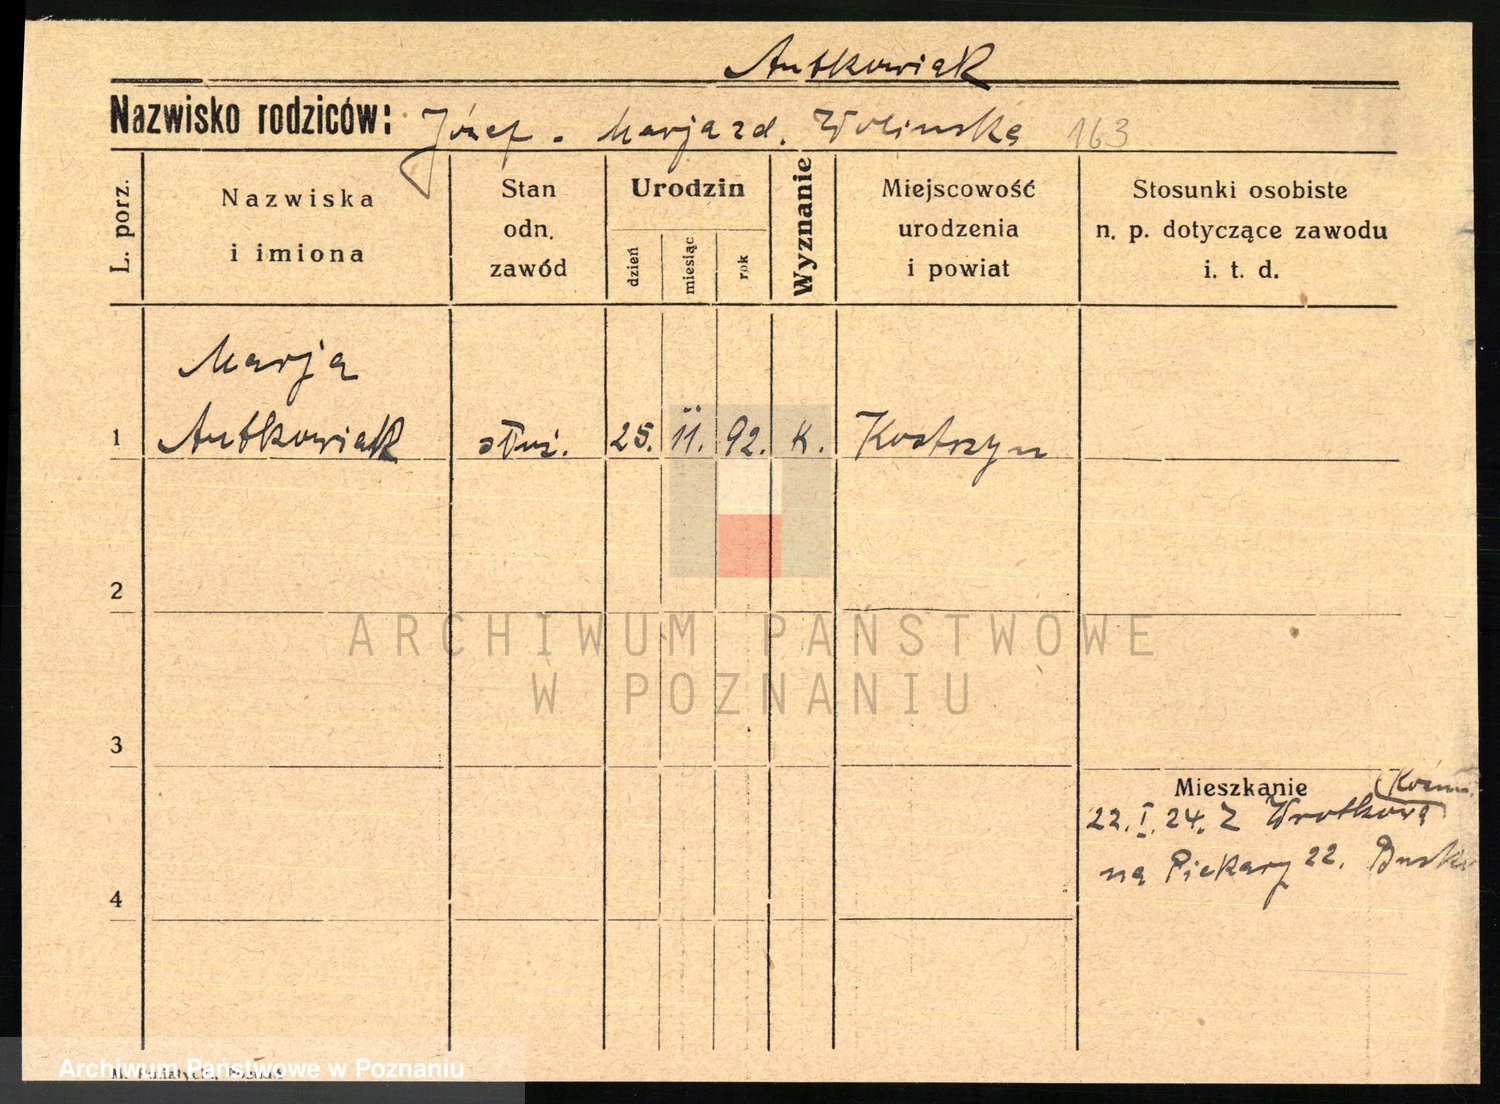 Antkowiak
Nazwisko rodziców: Józef - Marja zd. Wolinska 163
L. porz.
Nazwiska
i imiona
Stan
odn.
zawód
Urodzin
dzień
miesiąc
rok
Wyznanie
Miejscowość
urodzenia
i powiat
Stosunki osobiste
n. p. dotyczące zawodu
i. t. d.
Marja
1 Antkowiak służ. 25. 11. 92. K. Kostrzyn
2
ARCHIWUM PAŃSTWOWE
W POZNANIU
3
Mieszkanie
22. I. 24. Z Wrotkowa
na Piekary 22.
4
Archiwum Państwowe w Poznaniu